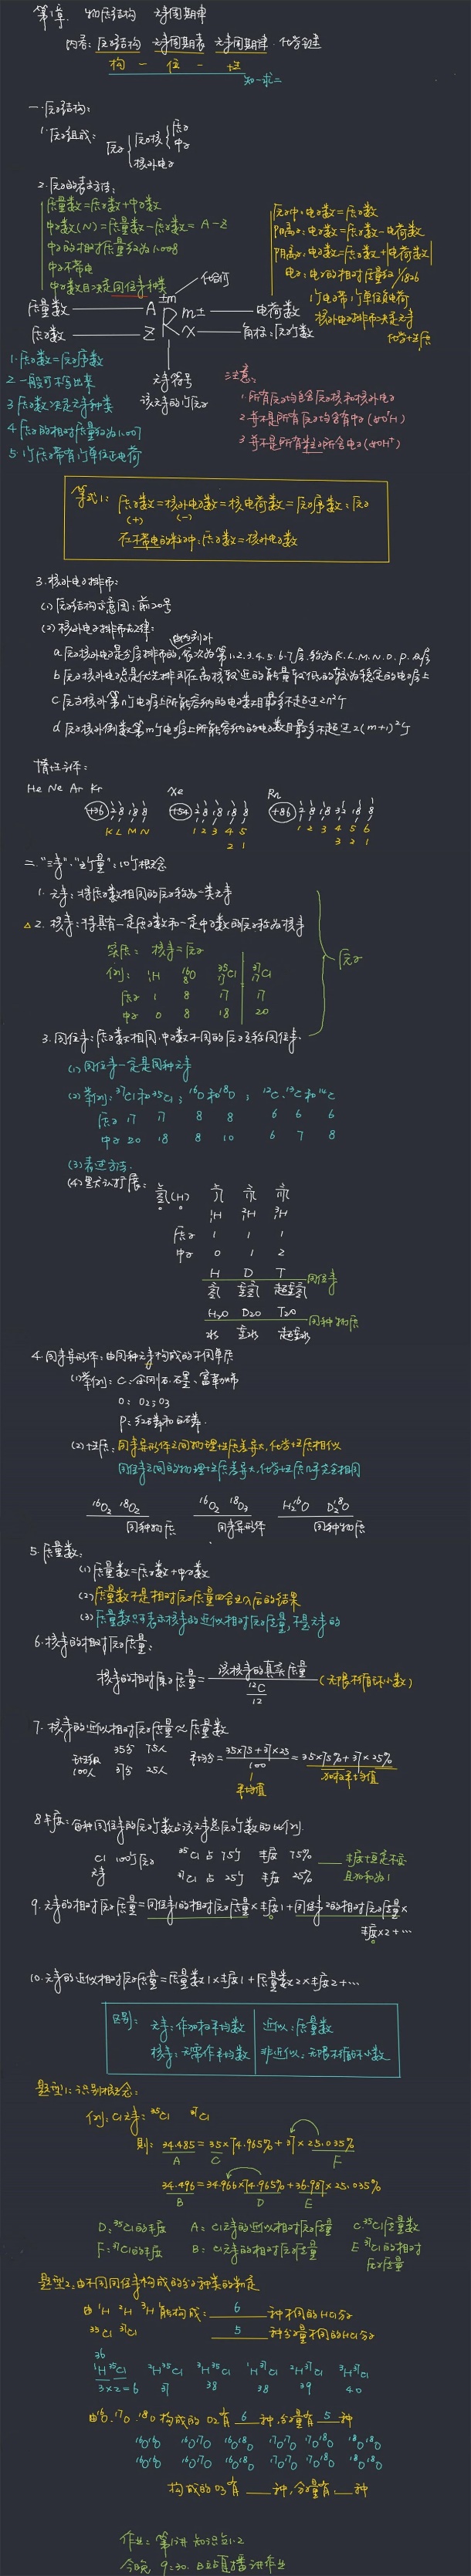 第1章 物质结构 元素周期律
内容:原子结构 元素周期表 元素周期律 化学键
构 - 位 - 性
知一求二
一.原子结构:
1.原子组成: 原子 原子核 质子
中子
核外电子
2.原子的表示方法:
质量数=质子数+中子数
中子数(N)=质量数-质子数= A-Z
中子的相对质量约为1.008
中子不带电
中子数目决定同位素种类
原子中:电子数=质子数
阳离子:电子数=质子数-电荷数
阴离子:电子数=质子数+|电荷数|
电子:电子的相对质量约1/1836
1个电子带1个单位负电荷
核外电子排布决定元素
化学性质
化合价
质量数 A ±m R m± 电荷数
质子数 Z X 角标:原子个数
元素符号
该元素的1个原子
1.质子数=原子序数
2.一般可不写出来
3.质子数决定元素种类
4.质子的相对质量约为1.007
5.1个质子带有1个单位正电荷
注意:
1.所有原子均包含原子核和核外电子
2.并不是所有原子均含有中子(如¹H)
3.并不是所有粒子所含电子(如H⁺)
等式1: 质子数=核外电子数=核电荷数=原子序数:原子
(+) (-)
在不带电的粒子中:质子数=核外电子数
3.核外电子排布:
(1)原子结构示意图:前20号
(2)核外电子排布规律:
由内到外
a.原子核外电子是分层排布的,依次为第1.2.3.4.5.6.7层,称为K.L.M.N.O.P.Q层
b.原子核外电子总是优先排列在离核较近的能量较低的较为稳定的电子层上
c.原子核外第n个电子层上所能容纳的电子数目最多不超过2n²个
d.原子核外倒数第m个电子层上所能容纳的电子数目最多不超过2(m+1)²个
惰性气体:
He Ne Ar Kr Xe Rn
+36 2 8 18 8 +54 2 8 18 18 8 +86 2 8 18 32 18 8
K L M N 1 2 3 4 5 1 2 3 4 5 6
2 1 3 2 1
二."三素"."五个量":10个概念
1.元素:将质子数相同的原子称为一类元素
△2.核素:将具有一定质子数和一定中子数的原子称为核素
实质: 核素=原子
例: ¹₁H ¹⁶₈O ³⁵₁₇Cl ³⁷₁₇Cl
质子 1 8 17 17
中子 0 8 18 20
原子
3.同位素:质子数相同.中子数不同的原子互称同位素.
(1)同位素一定是同种元素
(2)举例:³⁷Cl和³⁵Cl; ¹⁶O和¹⁸O; ¹²C.¹³C和¹⁴C
质子 17 17 8 8 6 6 6
中子 20 18 8 10 6 7 8
(3)表述方法.
(4)默认扩展: 氢(H) 氕 氘 氚
¹H ²H ³H
质子 1 1 1
中子 0 1 2
H D T 同位素
氢 重氢 超重氢
H₂O D₂O T₂O 同种物质
水 重水 超重水
4.同素异形体:由同种元素构成的不同单质
(1)举例: C:金刚石.石墨.富勒烯
O: O₂ O₃
P:红磷和白磷.
(2)性质:同素异形体之间物理性质差异大,化学性质相似
同位素之间的物理性质差异大,化学性质几乎完全相同
¹⁶O₂ ¹⁸O₂ ¹⁶O₂ ¹⁸O₃ H₂¹⁶O D₂¹⁸O
同种物质 同素异形体 同种物质
5.质量数:
(1)质量数=质子数+中子数
(2)质量数不是相对原子质量四舍五入后的结果
(3)质量数只表示核素的近似相对原子质量,不是元素的
6.核素的相对原子质量:
核素的相对原子质量= 该核素的真实质量 (无限不循环小数)
¹²C
12
7.核素的近似相对原子质量≈质量数
班级 35分 75人 平均分= 35×75+37×25 = 35×75%+37×25%
100人 37分 25人 100 加权平均值
平均值
8.丰度:每种同位素的原子个数占该元素总原子个数的比例.
Cl 100个原子 ³⁵Cl占75个 丰度 75% 丰度恒定不变
元素 ³⁷Cl占25个 丰度 25% 且加和为1
9.元素的相对原子质量=同位素1的相对原子质量×丰度1+同位素2的相对原子质量×
丰度×2+…
10.元素的近似相对原子质量=质量数1×丰度1+质量数2×丰度2+…
区别: 元素:作加权平均数 近似:质量数
核素:无需作平均数 非近似:无限不循环小数
题型1:识别概念:
例:Cl元素:³⁵Cl ³⁷Cl
则: 34.485=35×74.965%+37×25.035%
A C F
34.496=34.966×74.965%+36.987×25.035%
B D E
D:³⁵Cl的丰度 A:Cl元素的近似相对原子质量 C:³⁵Cl质量数
F:³⁷Cl的丰度 B:Cl元素的相对原子质量 E:³⁷Cl的相对
原子质量
题型2:由不同同位素构成的分子种类的判定
由 ¹H ²H ³H 能构成: 6 种不同的HCl分子
³⁵Cl ³⁷Cl 5 种分子量不同的HCl分子
36
¹H³⁵Cl ²H³⁵Cl ³H³⁵Cl ¹H³⁷Cl ²H³⁷Cl ³H³⁷Cl
3×2=6 37 38 38 39 40
由¹⁶O.¹⁷O.¹⁸O构成的O₂有 6 种,分子量有 5 种
¹⁶O¹⁶O ¹⁶O¹⁷O ¹⁶O¹⁸O ¹⁷O¹⁷O ¹⁷O¹⁸O ¹⁸O¹⁸O
¹⁶O¹⁶O ¹⁶O¹⁷O ¹⁶O¹⁸O ¹⁷O¹⁷O ¹⁷O¹⁸O ¹⁸O¹⁸O
构成的O₃有 种,分子量有 种
作业:第1讲 知识点1.2
今晚 9:30. B站直播讲作业